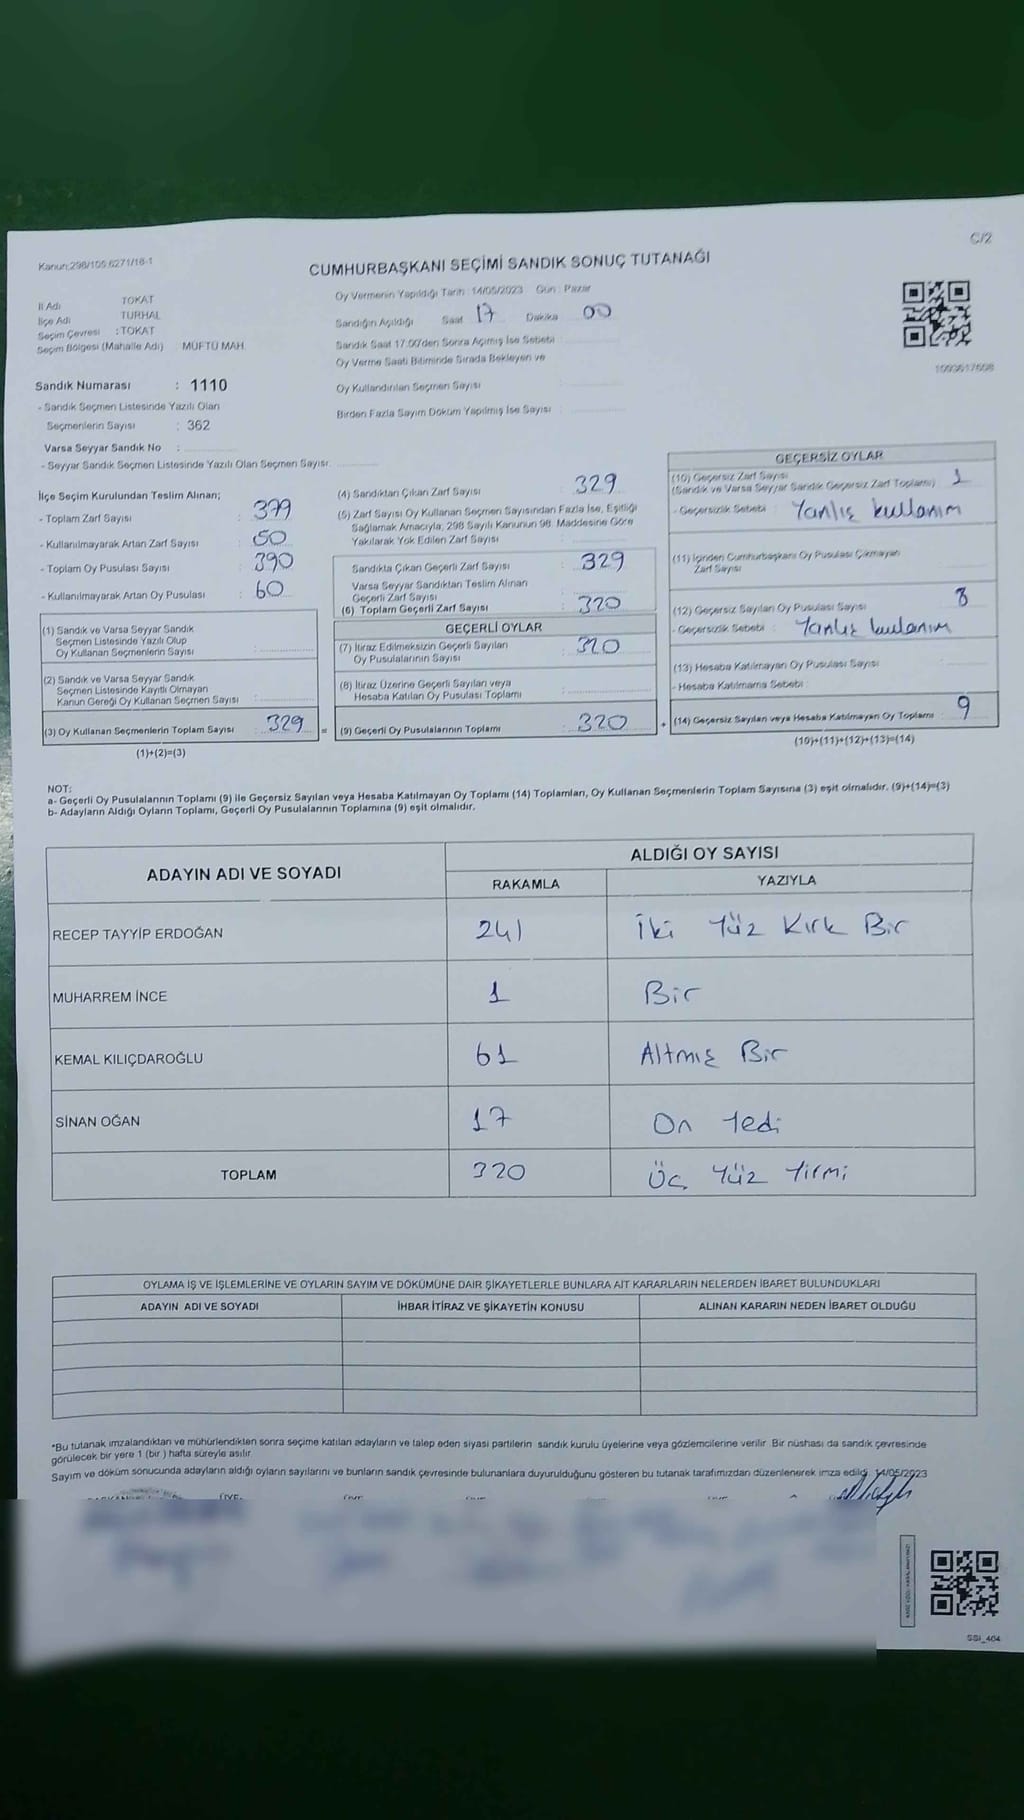 C/2
Kanun:298/105,6271/18-1
CUMHURBAŞKANI SEÇİMİ SANDIK SONUÇ TUTANAĞI
İl Adı TOKAT
İlçe Adı TURHAL
Seçim Çevresi : TOKAT
Seçim Bölgesi (Mahalle Adı) MÜFTÜ MAH.
Sandık Numarası : 1110
- Sandık Seçmen Listesinde Yazılı Olan
Seçmenlerin Sayısı : 362
Varsa Seyyar Sandık No :
- Seyyar Sandık Seçmen Listesinde Yazılı Olan Seçmen Sayısı:
Oy Vermenin Yapıldığı Tarih : 14/05/2023 Gün : Pazar
Sandığın Açıldığı Saat 17 Dakika 00
Sandık Saat 17:00'den Sonra Açımış İse Sebebi :
Oy Verme Saati Bitiminde Sırada Bekleyen ve
Oy Kullandırılan Seçmen Sayısı
Birden Fazla Sayım Döküm Yapılmış İse Sayısı :
1093617608
İlçe Seçim Kurulundan Teslim Alınan;
- Toplam Zarf Sayısı : 379
- Kullanılmayarak Artan Zarf Sayısı : 50
- Toplam Oy Pusulası Sayısı : 390
- Kullanılmayarak Artan Oy Pusulası : 60
(1) Sandık ve Varsa Seyyar Sandık
Seçmen Listesinde Yazılı Olup
Oy Kullanan Seçmenlerin Sayısı :
(2) Sandık ve Varsa Seyyar Sandık
Seçmen Listesinde Kayıtlı Olmayan
Kanun Gereği Oy Kullanan Seçmen Sayısı :
(3) Oy Kullanan Seçmenlerin Toplam Sayısı : 329 =
(1)+(2)=(3)
(4) Sandıktan Çıkan Zarf Sayısı : 329
(5) Zarf Sayısı Oy Kullanan Seçmen Sayısından Fazla İse, Eşitliği
Sağlamak Amacıyla; 298 Sayılı Kanunun 98. Maddesine Göre
Yakılarak Yok Edilen Zarf Sayısı :
Sandıkta Çıkan Geçerli Zarf Sayısı : 329
Varsa Seyyar Sandıktan Teslim Alınan
Geçerli Zarf Sayısı :
(6) Toplam Geçerli Zarf Sayısı : 320
GEÇERLİ OYLAR
(7) İtiraz Edilmeksizin Geçerli Sayılan
Oy Pusulalarının Sayısı : 320
(8) İtiraz Üzerine Geçerli Sayılan veya
Hesaba Katılan Oy Pusulası Toplamı :
(9) Geçerli Oy Pusulalarının Toplamı : 320 +
GEÇERSİZ OYLAR
(10) Geçersiz Zarf Sayısı
(Sandık ve Varsa Seyyar Sandık Geçersiz Zarf Toplamı) : 1
- Geçersizlik Sebebi : Yanlış kullanım
(11) İçinden Cumhurbaşkanı Oy Pusulası Çıkmayan
Zarf Sayısı
(12) Geçersiz Sayılan Oy Pusulası Sayısı 8
- Geçersizlik Sebebi : Yanlış kullanım
(13) Hesaba Katılmayan Oy Pusulası Sayısı
- Hesaba Katılmama Sebebi :
(14) Geçersiz Sayılan veya Hesaba Katılmayan Oy Toplamı : 9
(10)+(11)+(12)+(13)=(14)
NOT:
a- Geçerli Oy Pusulalarının Toplamı (9) ile Geçersiz Sayılan veya Hesaba Katılmayan Oy Toplamı (14) Toplamları, Oy Kullanan Seçmenlerin Toplam Sayısına (3) eşit olmalıdır. (9)+(14)=(3)
b- Adayların Aldığı Oyların Toplamı, Geçerli Oy Pusulalarının Toplamına (9) eşit olmalıdır.
ADAYIN ADI VE SOYADI ALDIĞI OY SAYISI
RAKAMLA YAZIYLA
RECEP TAYYİP ERDOĞAN 241 İki Yüz Kırk Bir
MUHARREM İNCE 1 Bir
KEMAL KILIÇDAROĞLU 61 Altmış Bir
SİNAN OĞAN 17 On Yedi
TOPLAM 320 Üç Yüz Yirmi
OYLAMA İŞ VE İŞLEMLERİNE VE OYLARIN SAYIM VE DÖKÜMÜNE DAİR ŞİKAYETLERLE BUNLARA AİT KARARLARIN NELERDEN İBARET BULUNDUKLARI
ADAYIN ADI VE SOYADI İHBAR İTİRAZ VE ŞİKAYETİN KONUSU ALINAN KARARIN NEDEN İBARET OLDUĞU
*Bu tutanak imzalandıktan ve mühürlendikten sonra seçime katılan adayların ve talep eden siyasi partilerin sandık kurulu üyelerine veya gözlemcilerine verilir. Bir nüshası da sandık çevresinde
görülecek bir yere 1 (bir ) hafta süreyle asılır.
Sayım ve döküm sonucunda adayların aldığı oyların sayılarını ve bunların sandık çevresinde bulunanlara duyurulduğunu gösteren bu tutanak tarafımızdan düzenlenerek imza edildi. 14/05/2023
SSI_404